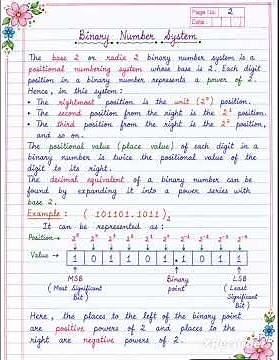 Page No. 2
Date:
Binary Number System
The base 2 or radix 2 binary number system is a
positional numbering system whose base is 2. Each digit
position in a binary number represents a power of 2.
Hence, in this system:
• The rightmost position is the unit (2⁰) position.
• The second position from the right is the 2¹ position.
• The third position from the right is the 2² position,
and so on.
The positional value (place value) of each digit in a
binary number is twice the positional value of the
digit to its right.
The decimal equivalent of a binary number can be
found by expanding it into a power series with
base 2.
Example: (101101.1011)₂
It can be represented as:
Position → 2⁵ 2⁴ 2³ 2² 2¹ 2⁰ 2⁻¹ 2⁻² 2⁻³ 2⁻⁴
Value → 1 0 1 1 0 1 . 1 0 1 1
MSB Binary LSB
(Most Significant point (Least
Bit) Significant
Bit)
Here, the places to the left of the binary point
are positive powers of 2 and places to the
right are negative powers of 2.